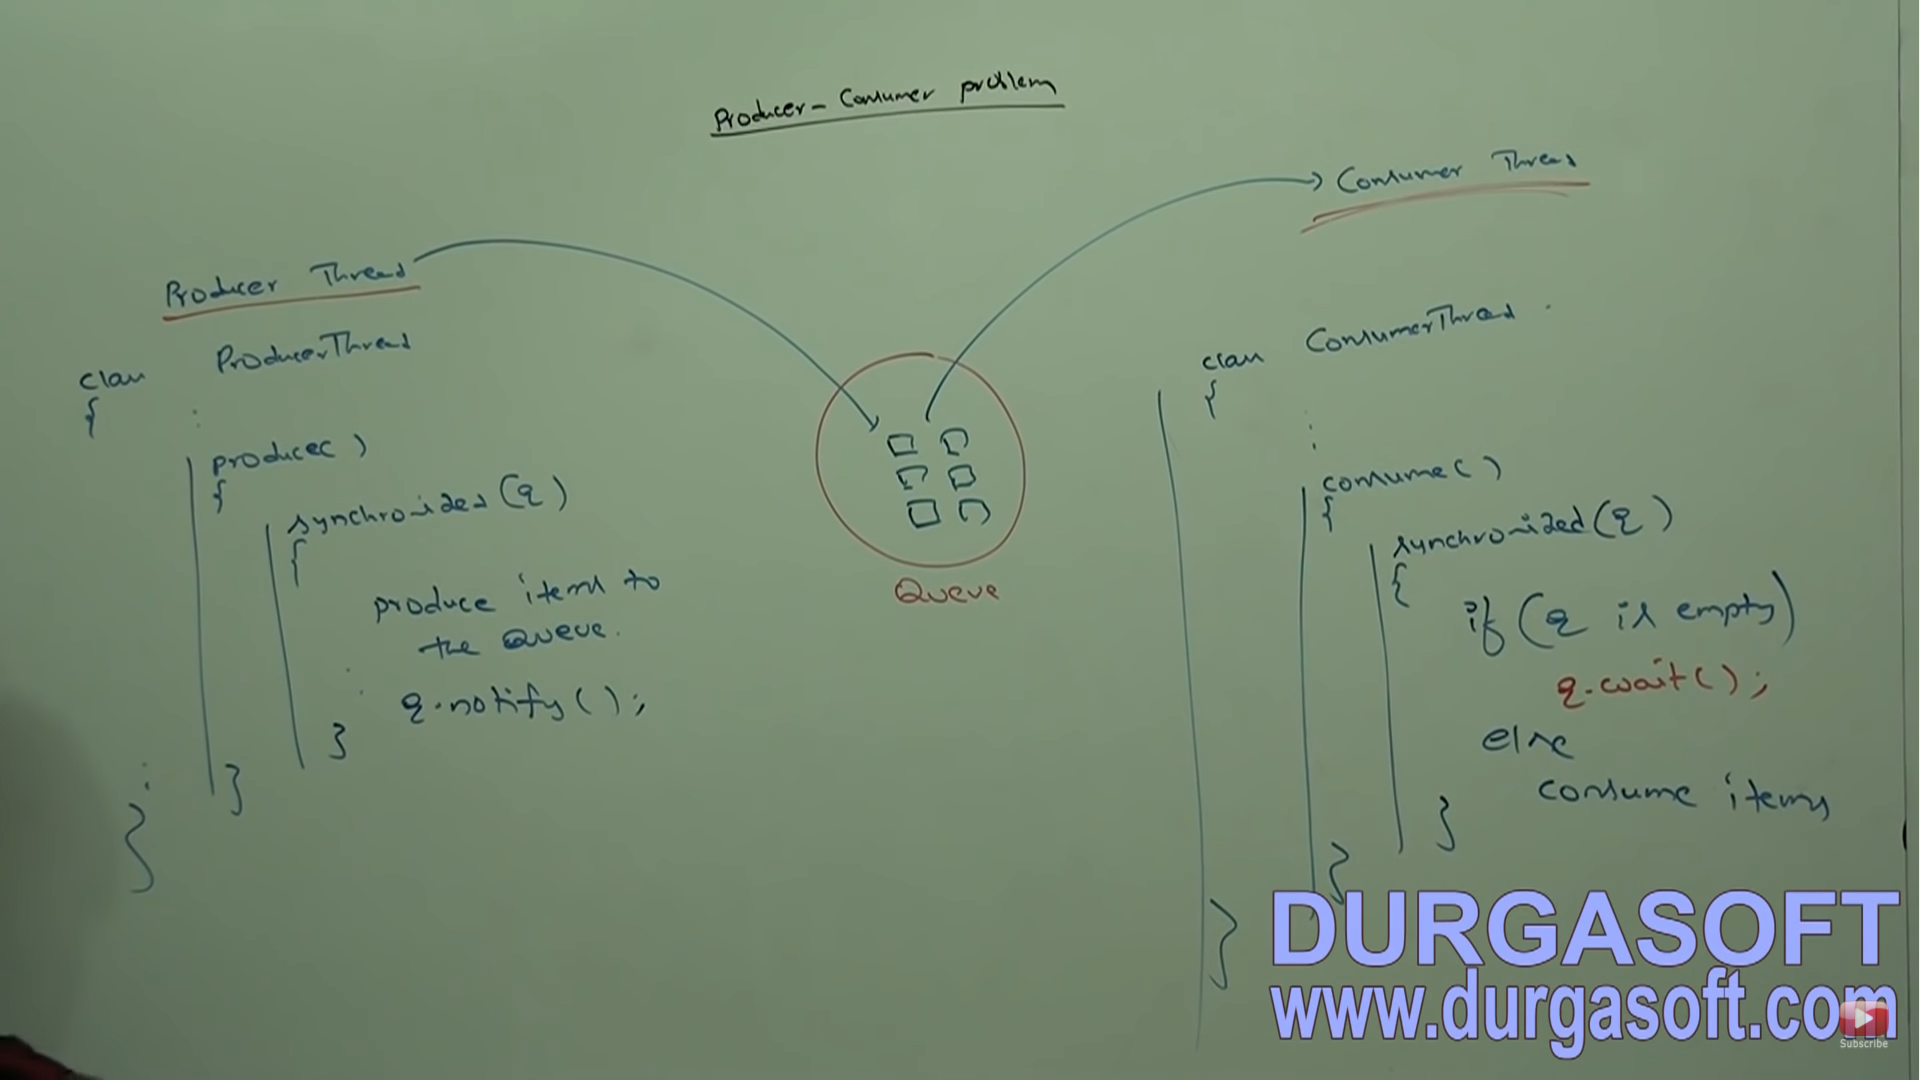 Producer - Consumer problem
Producer Thread
class ProducerThread
{
produce()
{
synchronized(q)
{
produce items to
the Queue.
q.notify();
}
}
}
Queue
Consumer Thread
class ConsumerThread
{
consume()
{
synchronized(q)
{
if (q is empty)
q.wait();
else
consume items
}
}
}
DURGASOFT
www.durgasoft.com
Subscribe